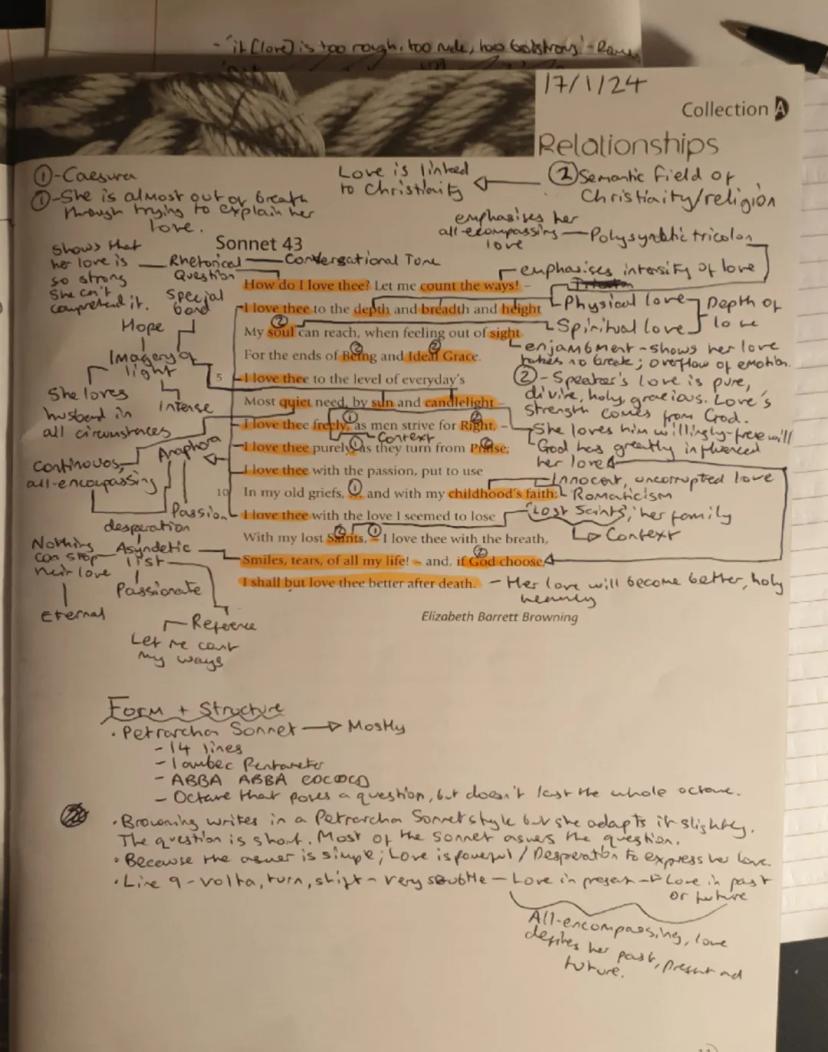 - 'it (love) is too rough, too rude, too boistrous' -
17/1/24
Collection A
Relationships
① - Caesura
① - She is almost out of breath
through trying to explain her
love.
Love is linked
to Christiaity
② Semantic field of
Christiaity/religion
emphasises her
all-ecompassing
love
Polysyndetic tricolon
Sonnet 43
Shows that
her love is
so strong
she can't
comprehend it.
Rhetorical
Question
Conversational Tone
emphasises intensity of love
Special
bond
Hope
Imagery of
light
Intense
She loves
husband in
all circumstances
Continuous,
all-encompassing
Anaphora
Passion
desperation
Nothing
can stop
their love
Eternal
Asyndetic
list
Passionate
Reference
Let me count
my ways
How do I love thee? Let me count the ways! –
I love thee to the depth and breadth and height
My soul can reach, when feeling out of sight
For the ends of Being and Ideal Grace.
5 I love thee to the level of everyday's
Most quiet need, by sun and candlelight –
I love thee freely, as men strive for Right, –
I love thee purely, as they turn from Praise;
I love thee with the passion, put to use
10 In my old griefs, .. and with my childhood's faith:
I love thee with the love I seemed to lose
With my lost Saints, – I love thee with the breath,
Smiles, tears, of all my life! – and, if God choose,
I shall but love thee better after death.
Elizabeth Barrett Browning
Physical love
Spiritual love
Depth of
love
enjambment - shows her love
takes no break; overflow of emotion.
② - Speaker's love is pure,
divine, holy, gracious. Love's
strength comes from God.
She loves him willingly - free will
God has greatly influenced
her love
Context
Innocent, uncorrupted love
Romaticism
'Lost Saints', her family
Context
Her love will become better, holy
heavenly
Form + Structure
· Petrarcha Sonnet → Mostly
- 14 lines
- Iambec Pentameter
- ABBA ABBA CDCDCD
- Octave that poses a question, but doesn't last the whole octave.
· Browning writes in a Petrarcha Sonnet style but she adapts it slightly.
The question is short. Most of the sonnet aswers the question.
· Because the aswer is simple; Love is powerful / Desperation to express her love.
· Line 9 - volta, turn, shift - very subtle - Love in present → Love in past
or future
All-encompassing, love
defines her past, present and
future.